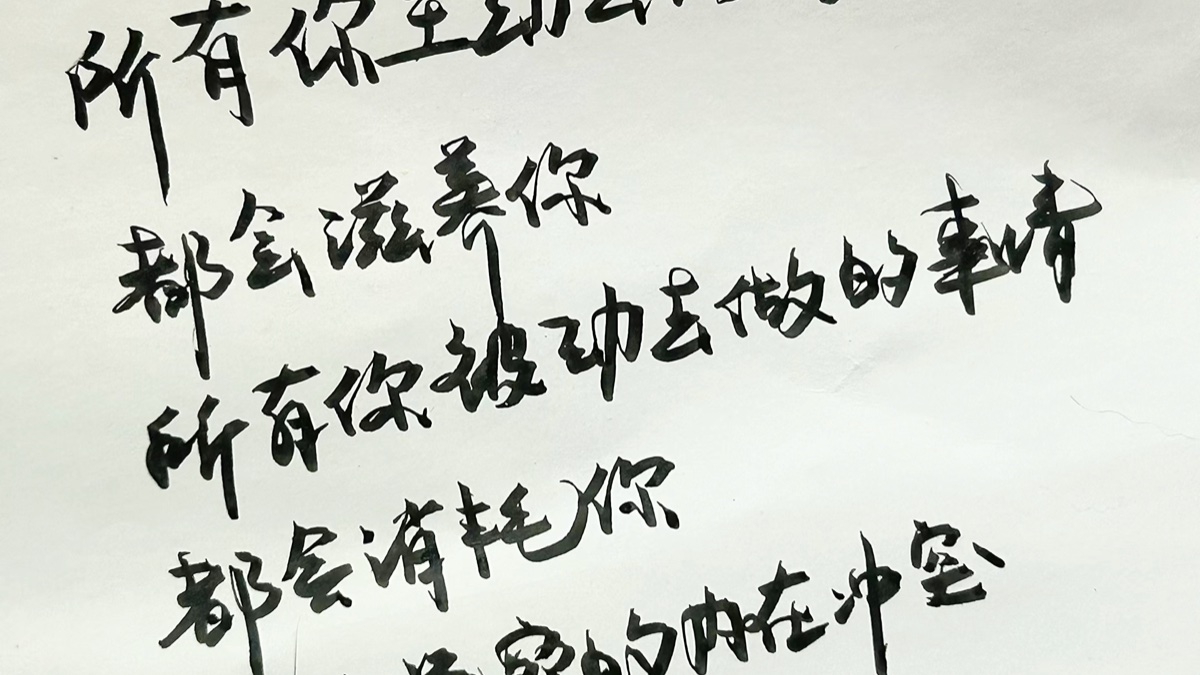 所有你主动去
都会滋养你
所有你被动去做的事情
都会消耗你
的内在冲突